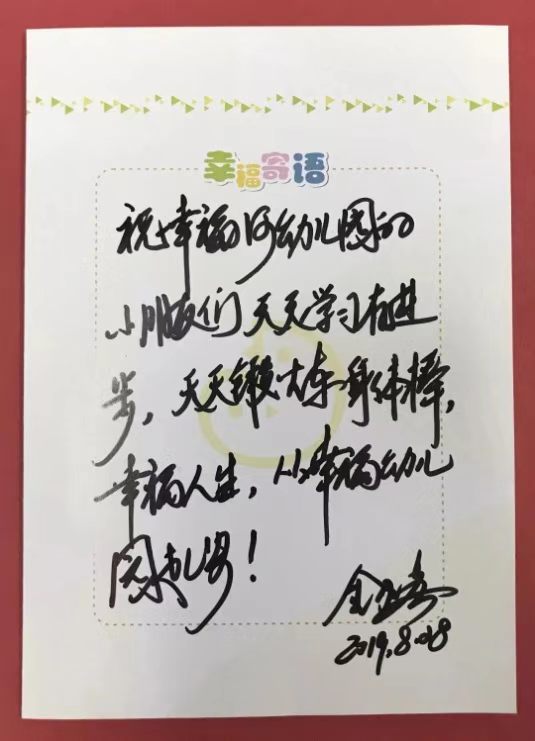 幸福寄语
祝幸福河幼儿园的
小朋友们天天学习有进
步，天天锻炼身体棒，
幸福人生，从幸福幼儿
园起步！
2019.8.28